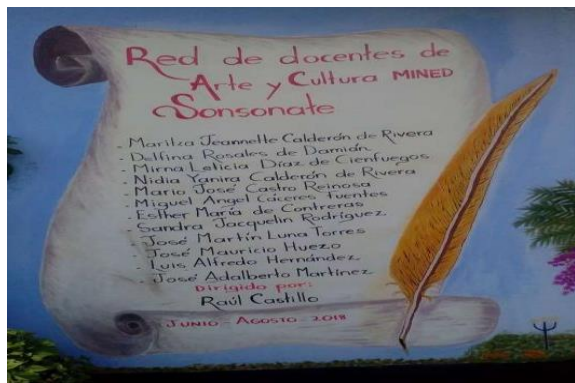 Red de docentes de
Arte y Cultura MINED
Sonsonate
- Maritza Jeannette Calderón de Rivera
- Delfina Rosales de Damián
- Mirna Leticia Díaz de Cienfuegos
- Nidia Yanira Calderón de Rivera
- Mario José Castro Reinosa
- Miguel Angel Cáceres Fuentes
- Esther María de Contreras
- Sandra Jacquelin Rodríguez.
- José Martín Luna Torres
- José Mauricio Huezo
- Luis Alfredo Hernández.
- José Adalberto Martínez
Dirigido por:
Raúl Castillo
JUNIO - AGOSTO - 2018